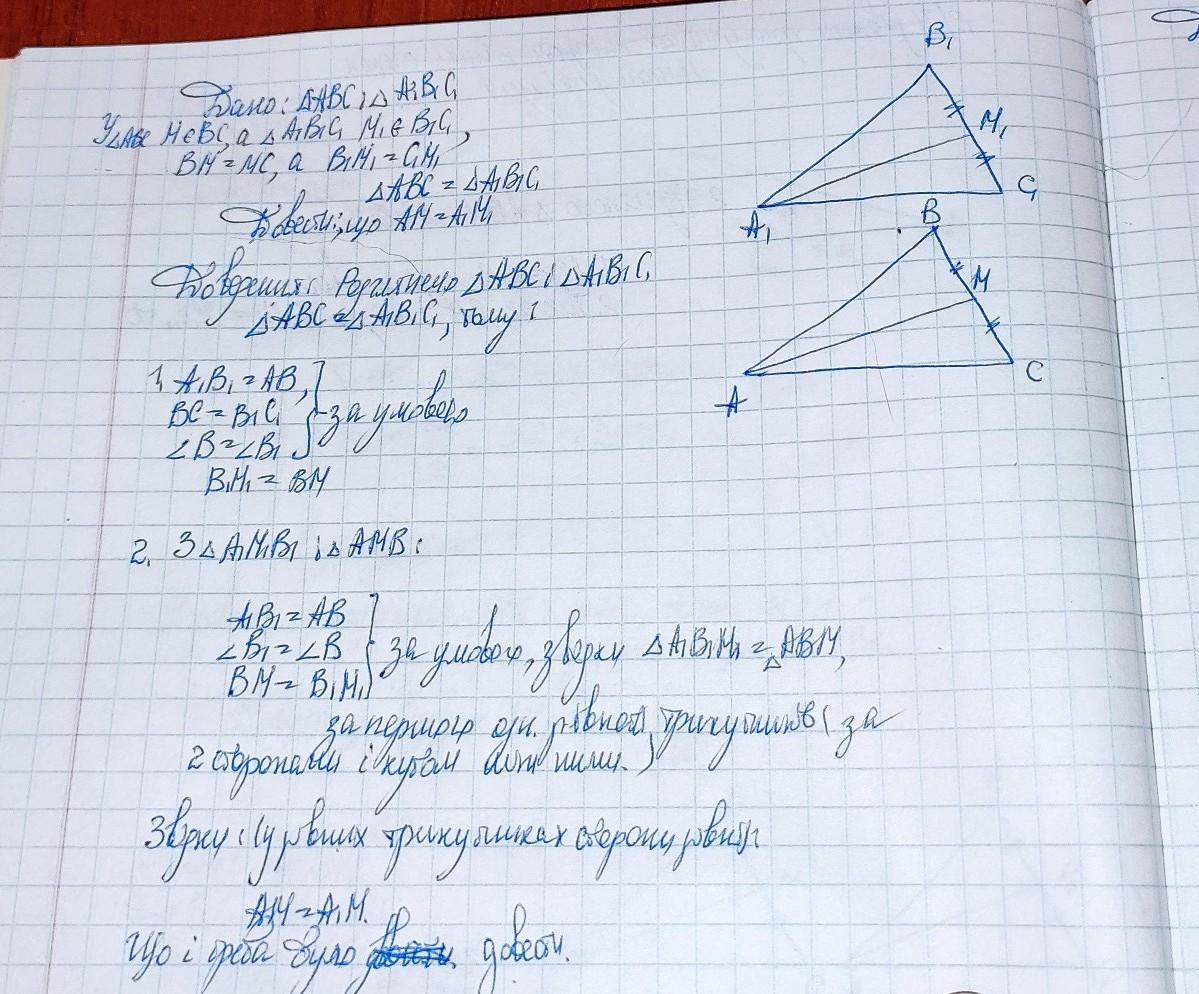 Дано: △ABC і △A₁B₁C₁
У △ABC M∈BC, а △A₁B₁C₁ M₁∈B₁C₁,
BM=MC, а B₁M₁=C₁M₁
△ABC=△A₁B₁C₁
Довести, що AM=A₁M₁
Доведення: Розглянемо △ABC і △A₁B₁C₁
△ABC=△A₁B₁C₁, тому:
1, A₁B₁=AB,
BC=B₁C₁
∠B=∠B₁
за умовою
B₁M₁=BM
2. З △A₁M₁B₁ і △AMB:
A₁B₁=AB
∠B₁=∠B
BM=B₁M₁
за умовою, звідки △A₁B₁M₁=△ABM,
за першою озн. рівності трикутників (за
2 сторонами і кутом між ними.)
Звідки: (у рівних трикутниках сторони рівні):
AM=A₁M.
Що і треба було довести.
B₁
M₁
C₁
A₁
B
M
C
A